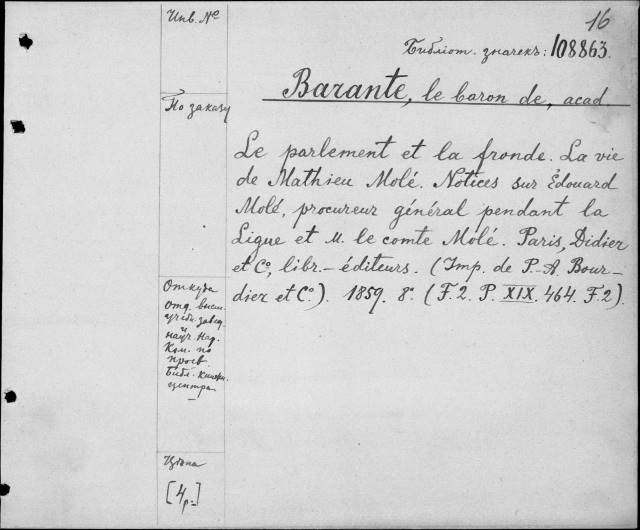 16
Инв. №
Библiот. значекъ: 108863.
Barante, le baron de, acad.
По заказу
Le parlement et la fronde. La vie
de Mathieu Molé. Notices sur Édouard
Molé, procureur général pendant la
Ligue et M. le comte Molé. Paris, Didier
et Cº, libr.-éditeurs. (Imp. de P.-A. Bour-
dier et Cº.). 1859. 8º. (F.2. P. XIX. 464. F.2).
Откуда
Отд. высш.
учебн. завед.
и
науч. Нар.
Ком. по
просв.
Библ. Книжн.
центра
Цѣна
[4 р=]